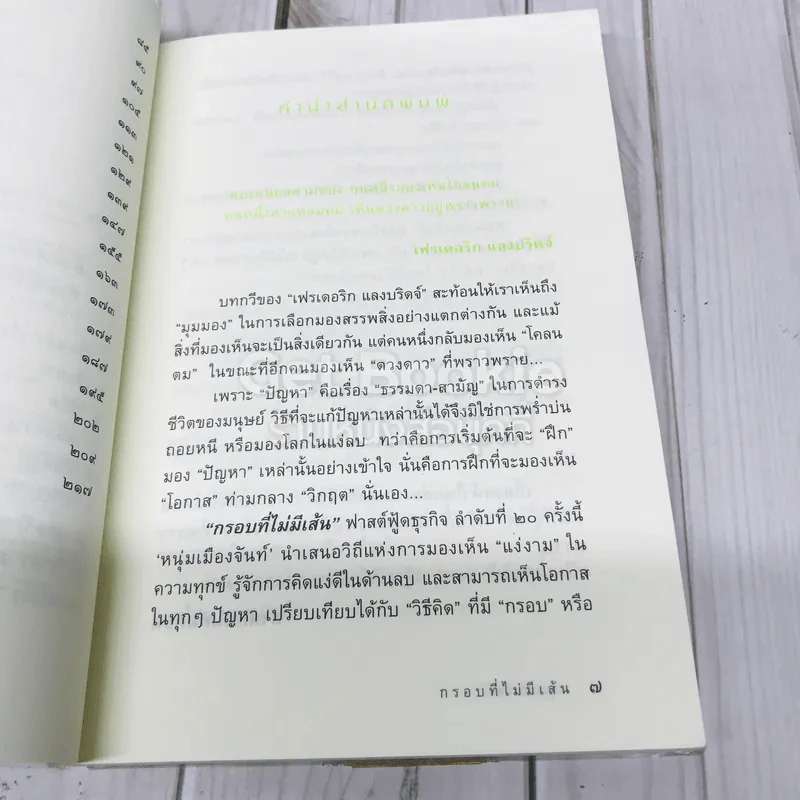 ๘๕
๙๐
๙๗
๑๐๕
๑๑๓
๑๒๑
๑๒๙
๑๓๙
๑๔๗
๑๕๕
๑๖๓
๑๗๓
๑๗๙
๑๘๗
๑๙๕
๒๐๒
๒๐๙
๒๑๗
คำนำสำนักพิมพ์
คนหนึ่งตาแหลมคม เห็นดวงดาวอยู่พราวพราย
เฟรเดอริก แลงบริดจ์
บทกวีของ “เฟรเดอริก แลงบริดจ์” สะท้อนให้เราเห็นถึง
“มุมมอง” ในการเลือกมองสรรพสิ่งอย่างแตกต่างกัน และแม้
สิ่งที่มองเห็นจะเป็นสิ่งเดียวกัน แต่คนหนึ่งกลับมองเห็น “โคลน
ตม” ในขณะที่อีกคนมองเห็น “ดวงดาว” ที่พราวพราย...
เพราะ “ปัญหา” คือเรื่อง “ธรรมดา-สามัญ” ในการดำรง
ชีวิตของมนุษย์ วิธีที่จะแก้ปัญหาเหล่านั้นได้จึงมิใช่การพร่ำบ่น
ถอยหนี หรือมองโลกในแง่ลบ ทว่าคือการเริ่มต้นที่จะ “ฝึก”
มอง “ปัญหา” เหล่านั้นอย่างเข้าใจ นั่นคือการฝึกที่จะมองเห็น
“โอกาส” ท่ามกลาง “วิกฤต” นั่นเอง...
“กรอบที่ไม่มีเส้น” ฟาสต์ฟู้ดธุรกิจ ลำดับที่ ๒๐ ครั้งนี้
‘หนุ่มเมืองจันท์’ นำเสนอวิถีแห่งการมองเห็น “แง่งาม” ใน
ความทุกข์ รู้จักการคิดแง่ดีในด้านลบ และสามารถเห็นโอกาส
ในทุกๆ ปัญหา เปรียบเทียบได้กับ “วิธีคิด” ที่มี “กรอบ” หรือ
กรอบที่ไม่มีเส้น ๗
Get Bookie